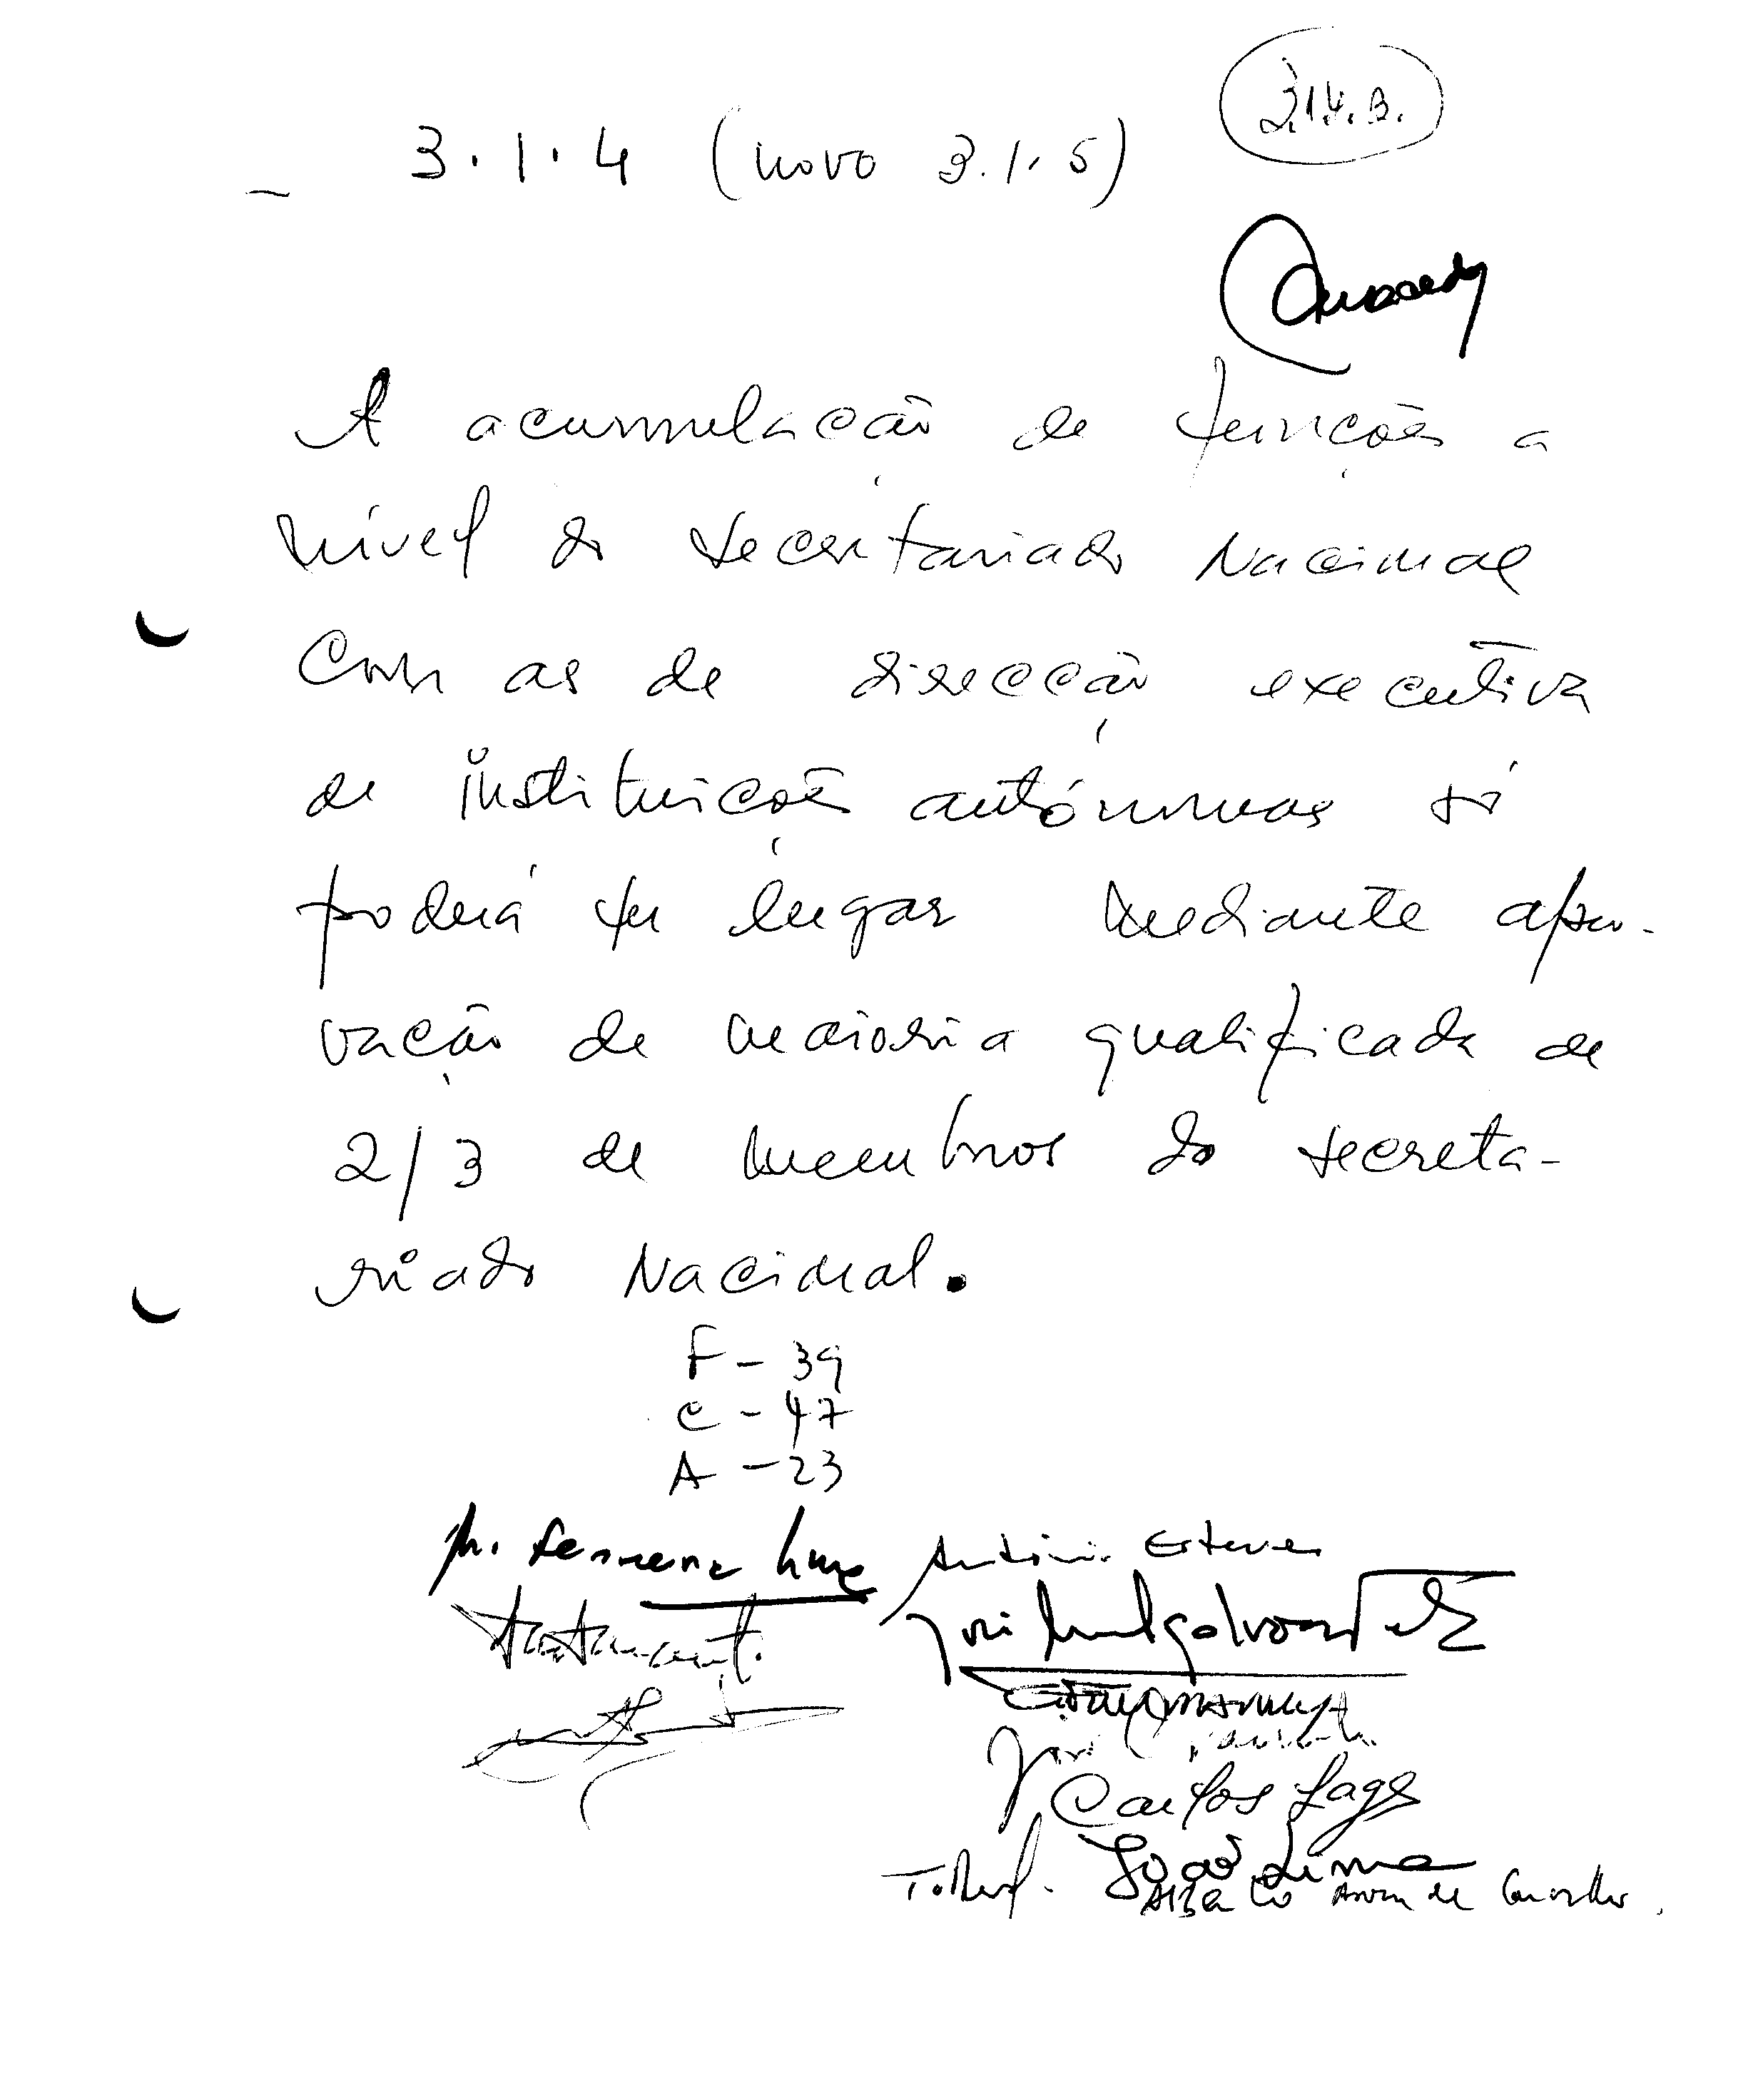 3.1.4.B.
3.1.4 (novo 3.1.5)
A acumulação de funções a
nível do Secretariado Nacional
com as de direcção executiva
de instituições autónomas só
poderá ter lugar mediante apro-
vação de maioria qualificada de
2/3 de membros do Secreta-
riado Nacional.
F - 39
C - 47
A - 23
António Esteves
Carlos Lage
João Lima